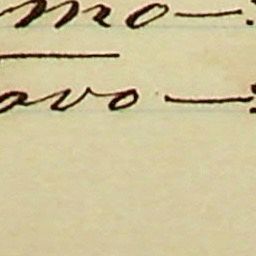 mo —:
avo —: